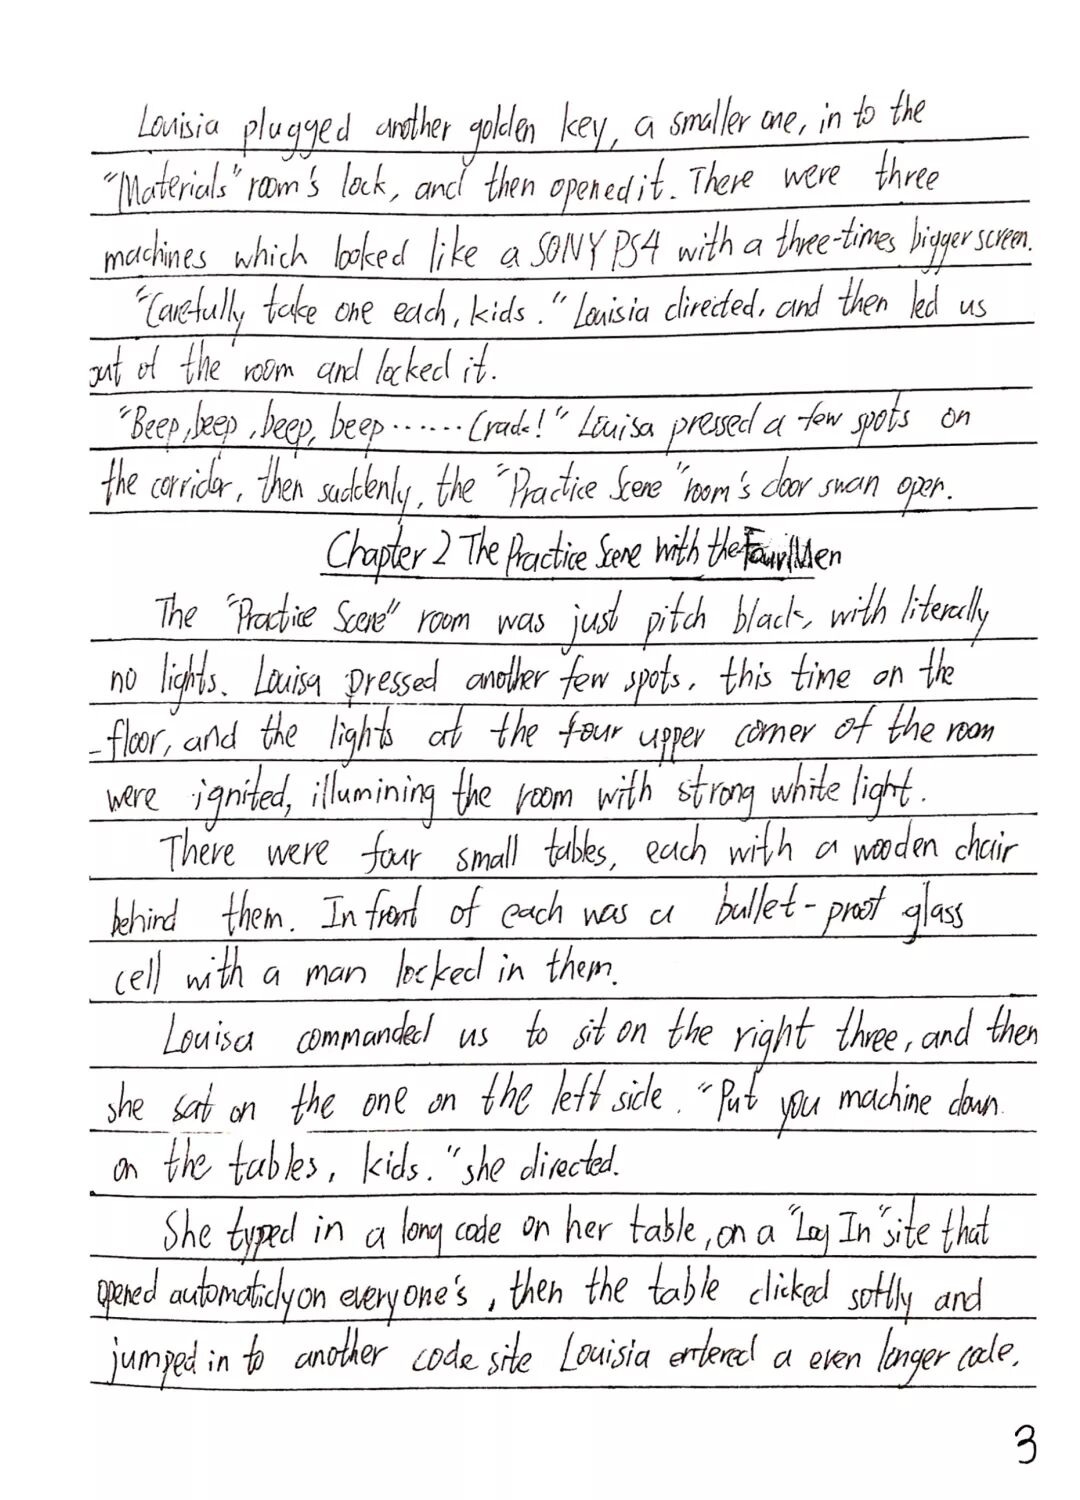 Louisia plugged another golden key, a smaller one, in to the
"Materials" room's lock, and then opened it. There were three
machines which looked like a SONY PS4 with a three-times bigger screen.
"Carefully take one each, kids." Louisia directed, and then led us
out of the room and locked it.
"Beep, beep, beep, beep ······· Crack!" Louisa pressed a few spots on
the corridor, then suddenly, the "Practice Scene" room's door swan open.
Chapter 2 The Practice Scene with the Four Men
The "Practice Scene" room was just pitch black, with literally
no lights. Louisa pressed another few spots, this time on the
floor, and the lights at the four upper corner of the room
were ignited, illumining the room with strong white light.
There were four small tables, each with a wooden chair
behind them. In front of each was a bullet-proof glass
cell with a man locked in them.
Louisa commanded us to sit on the right three, and then
she sat on the one on the left side. "Put you machine down
on the tables, kids." she directed.
She typed in a long code on her table, on a "Log In" site that
opened automaticly on everyone's, then the table clicked softly and
jumped in to another code site Louisia entered a even longer code.
3